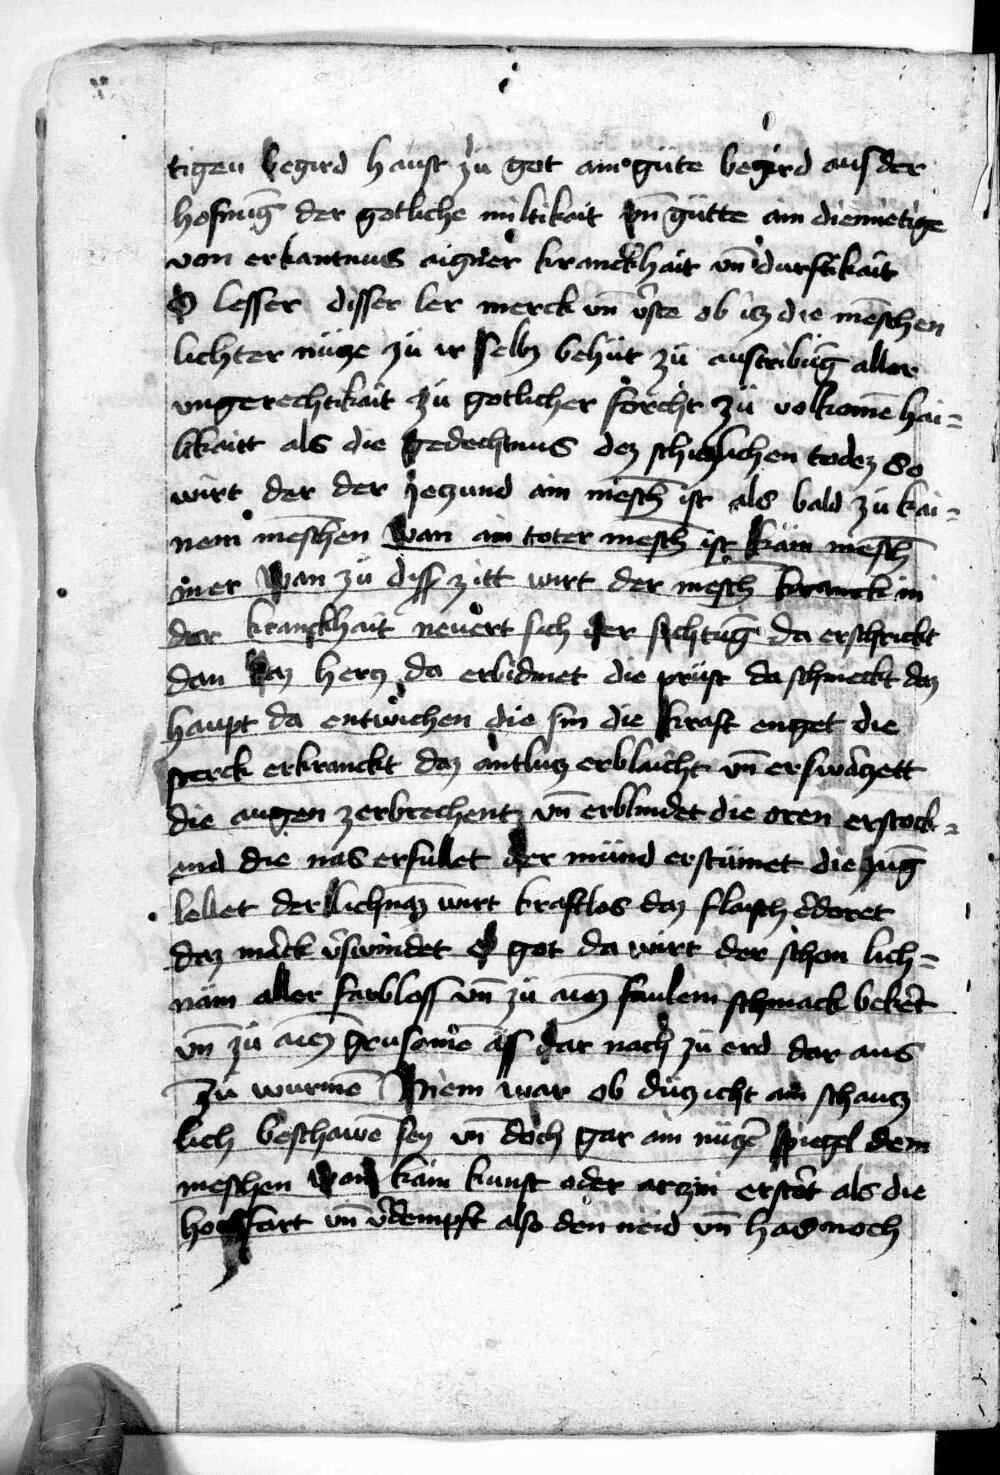 tigen begird haust zü got ain güte begird aus der
hofnūg der gotliche miltikait vn̄ gütte ain diemietige
von erkantnus aigner kranckhait vn̄ durftikait
O lesser disser ler merck vn̄ v̄ste ob icz die mēschen
lichter nücze zü ir selbz behüt zü austribūg aller
ungerechtikait zü gotlicher forcht zü volkomē hai=
likaitt als die gedechtnus dez schiezlichen todez So
wirt der der yeczund ain mēsch ist als bald zü kai=
nem mēschen wan ain toter mēsch ist kain mēsch
mer wan zü diss zitt wirt der mēsch kranck in
der kranckhait neuert sich der sichtūg da erschrickt
dan daz hercz da erbidmet die prüst da schmeckt daz
haupt da entwichen die sin die kraft enget die
sterck erkranckt daz antlucz erblaicht vn̄ erswarczett
die augen zerbrechent vn̄ erblindet die oren erstock=
und die nas erfullet der münd erstümet die zūg
lebet der lichnaz wirt kraftlos daz flaisch v̄doret
daz marck v̄swindet O got da wirt der schon lich=
nam aller farbloss vn̄ zü ainez faulem schmack bekert
vn̄ zü ainez grusomē ass dar nach zü erd dar aus
zu wurmē Niem war ob düz icht ain schaucz
lich beschawē sey vn̄ doch gar ain nüczē spiegel dem
meschen wan kain kunst oder arczni erstört als die
hoffart vn̄ v̄dempft also den neid vn̄ has noch